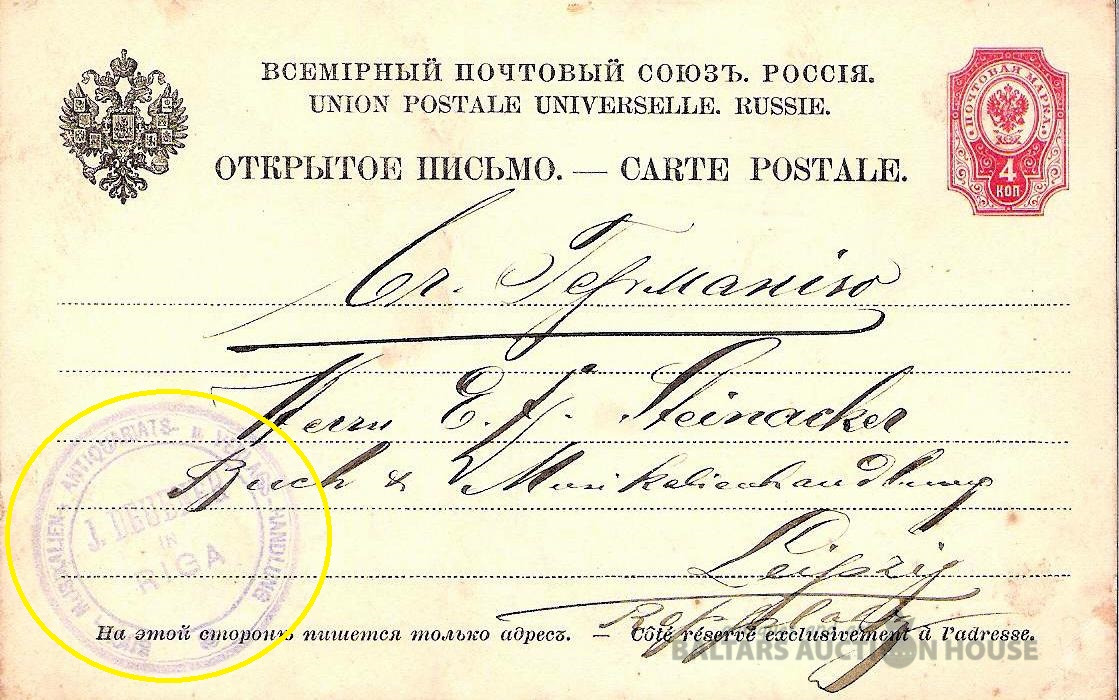 ВСЕМІРНЫЙ ПОЧТОВЫЙ СОЮЗЪ. РОССІЯ.
UNION POSTALE UNIVERSELLE. RUSSIE.
ПОЧТОВАЯ МАРКА
4
КОП
ОТКРЫТОЕ ПИСЬМО. — CARTE POSTALE.
Германію
Herrn E. F. Steinacker
Buch & Musikalienhandlung
Leipzig
MUSIKALIEN- ANTIQUARIATS- U. HANDLUNG
J.
IN
RIGA
На этой сторонѣ пишется только адресъ. — Côté réservé exclusivement à l'adresse.
BALTARS AUCTION HOUSE